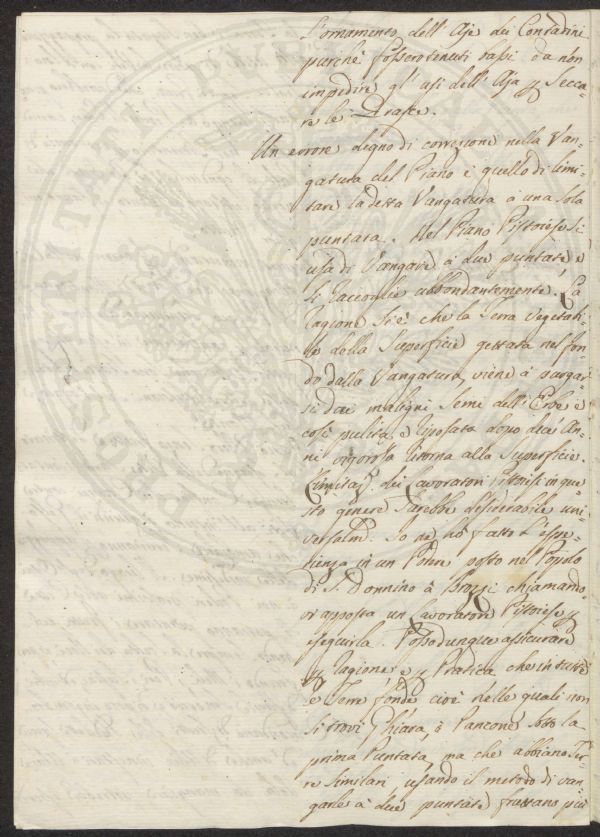 L'ornamento dell'Aje dei Contadini
purchè fossero tenuti bassi da non
impedire gl'usi dell'Aja p Secca-
re le Grasce.
Un errore degno di correzione nella Van-
gatura del Piano è quello di limi-
tare la detta Vangatura a una sola
puntata. Nel Piano Pistoiese si
usa di Vangare à due puntate e
si raccoglie abbondantemente. La
ragione si è che la Terra Vegetabi-
le della Superficie gettata nel fon-
do dalla Vangatura, viene à purgar-
si dai maligni Semi dell'Erbe e
così pulita e riposata dopo due An-
ni vigorosa ritorna alla Superficie.
L'imitaz.e dei Lavoratori Pistoiesi in que-
sto genere sarebbe desiderabile uni-
versalm. Io ne hò fatto l'espe-
rienza in un Podere posto nel Popolo
di S. Donnino à Brozzi chiamando-
vi apposta un Lavoratore Pistoiese p
eseguirla. Posso dunque assicurare
p ragione e p Pratica che in tutte
le Terre fonde cioè nelle quali non
si trovi Ghiara, ò Pancone sotto la
prima Puntata, ma che abbiano Ter-
re Similari, usando il metodo di van-
garle à due puntate fruttano più
PRESS VERITANI PVBLICA